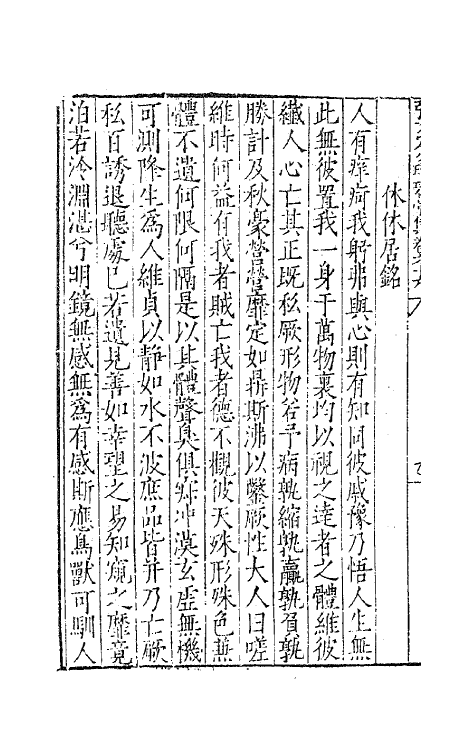 休休居銘
人有痒疴我躬弗與心則有知同彼戚豫乃悟人生無
此無彼置我一身于萬物裏均以視之達者之體維彼
纖人心亡其正既私厥形物若予病孰縮孰贏孰負孰
勝計及秋豪營營靡定如鼎斯沸以鑿厥性大人曰嗟
維時何益有我者賊亡我者德不觀彼天殊形殊色無
體不遺何限何隔是以其體聲臭俱寂沖漠玄虛無機
可測降生爲人維貞以静如水不波庶品皆并乃亡厥
私百誘退聽處巳若遺見善如幸望之易知窺之靡竟
泊若泠淵湛兮明鏡無感無爲有感斯應鳥獸可馴人